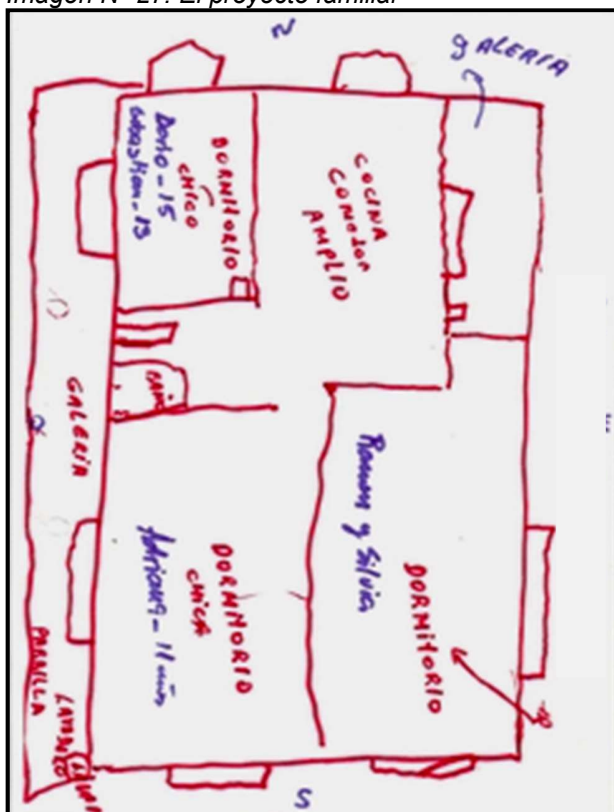 Imagen N° 27: El proyecto familiar
N
GALERIA
DORMITORIO
CHICO
Dario - 15
Sebastian - 13
COCINA
COMEDOR
AMPLIO
BAÑO
GALERIA
Ramon y Silvia
DORMITORIO
DORMITORIO
CHICA
Adriana - 11 años
PARRILLA
LAVADERO
S